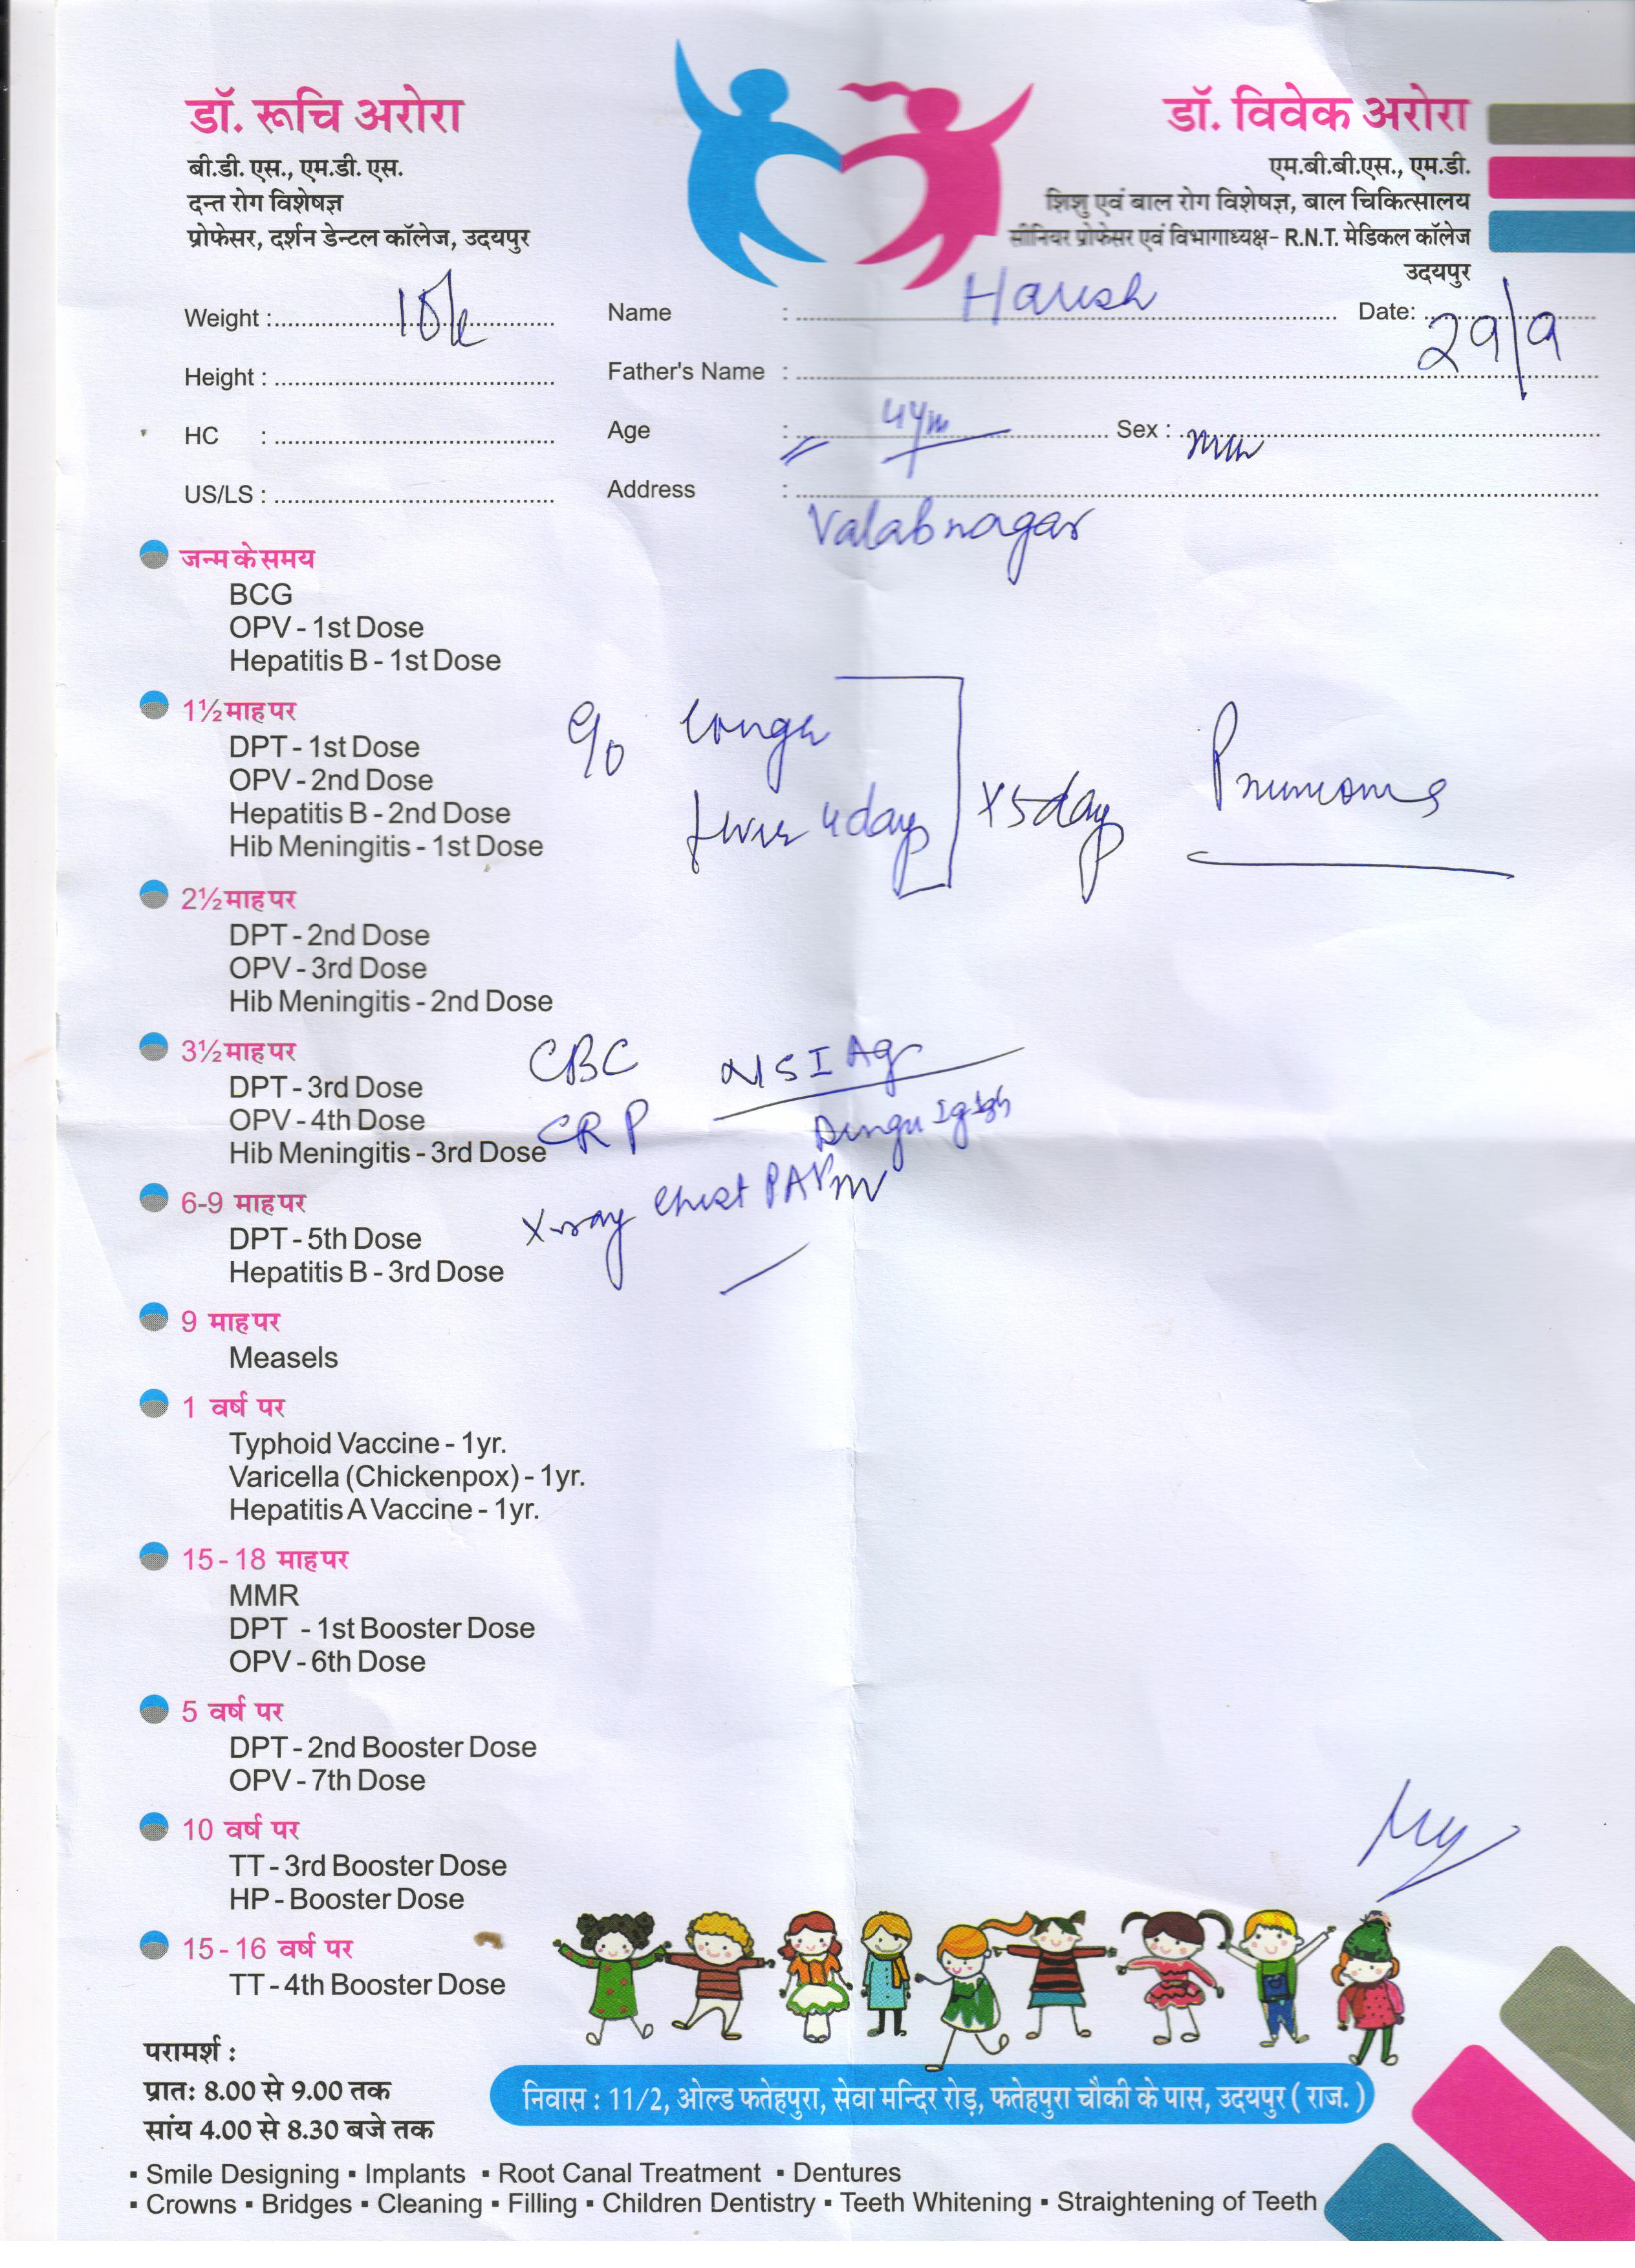 डॉ. रूचि अरोरा
बी.डी. एस., एम.डी. एस.
दन्त रोग विशेषज्ञ
प्रोफेसर, दर्शन डेन्टल कॉलेज, उदयपुर
डॉ. विवेक अरोरा
एम.बी.बी.एस., एम.डी.
शिशु एवं बाल रोग विशेषज्ञ, बाल चिकित्सालय
सीनियर प्रोफेसर एवं विभागाध्यक्ष- R.N.T. मेडिकल कॉलेज
उदयपुर
Weight : Name : Harish Date: 29/9
Height : Father's Name :
HC : Age : 4y Sex :
US/LS : Address :
Valabnagar
जन्म के समय
BCG
OPV - 1st Dose
Hepatitis B - 1st Dose
1½ माह पर
DPT - 1st Dose
OPV - 2nd Dose
Hepatitis B - 2nd Dose
Hib Meningitis - 1st Dose
4 days x 5 day
2½ माह पर
DPT - 2nd Dose
OPV - 3rd Dose
Hib Meningitis - 2nd Dose
3½ माह पर
DPT - 3rd Dose
OPV - 4th Dose
Hib Meningitis - 3rd Dose
CBC NSI Ag
CRP
X-ray Chest PA
6-9 माह पर
DPT - 5th Dose
Hepatitis B - 3rd Dose
9 माह पर
Measels
1 वर्ष पर
Typhoid Vaccine - 1yr.
Varicella (Chickenpox) - 1yr.
Hepatitis A Vaccine - 1yr.
15 - 18 माह पर
MMR
DPT - 1st Booster Dose
OPV - 6th Dose
5 वर्ष पर
DPT - 2nd Booster Dose
OPV - 7th Dose
10 वर्ष पर
TT - 3rd Booster Dose
HP - Booster Dose
15 - 16 वर्ष पर
TT - 4th Booster Dose
परामर्श :
प्रातः 8.00 से 9.00 तक
सांय 4.00 से 8.30 बजे तक
निवास : 11/2, ओल्ड फतेहपुरा, सेवा मन्दिर रोड़, फतेहपुरा चौकी के पास, उदयपुर ( राज. )
▪ Smile Designing ▪ Implants ▪ Root Canal Treatment ▪ Dentures
▪ Crowns ▪ Bridges ▪ Cleaning ▪ Filling ▪ Children Dentistry ▪ Teeth Whitening ▪ Straightening of Teeth